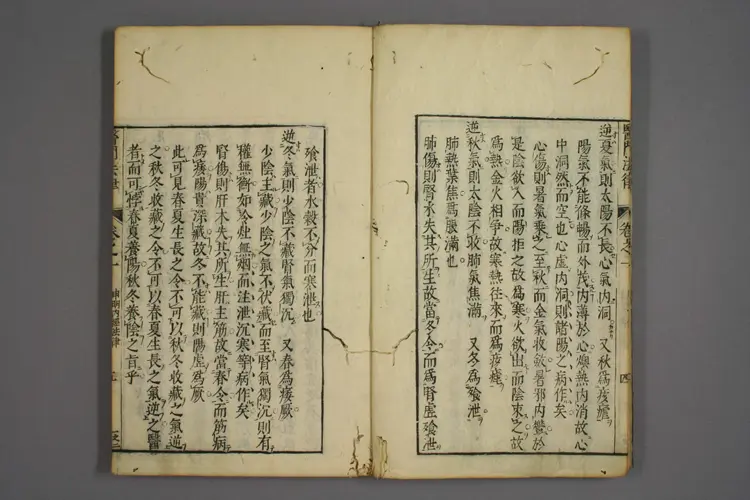 醫門法律 卷之一 四
逆夏氣則太陽不長心氣內洞 又秋為痎瘧
陽氣不能條暢而外茂內薄於心燠熱內消故心
中洞然而空也心虛內洞則諸陽之病作矣
心傷則暑氣乘之至秋而金氣收斂暑邪內鬱於
是陰欲入而陽拒之故為寒火欲出而陰束之故
為熱金火相爭故寒熱往來而為痎瘧
逆秋氣則太陰不收肺氣焦滿 又冬為飧泄
肺熱葉焦為脹滿也
肺傷則腎水失其所生故當冬令而為腎虛飧泄
飧泄者水穀不分而寒泄也
逆冬氣則少陰不藏腎氣獨沉 又春為痿厥
少陰主藏少陰之氣不伏藏而至腎氣獨沉則有
權無衡如冷灶無烟而注泄沉寒等病作矣
腎傷則肝木失其所生肝主筋故當春令而筋病
為痿陽貴深藏故冬不能藏則陽虛為厥
此可見春夏生長之令不可以秋冬收藏之氣逆
之秋冬收藏之令不可以春夏生長之氣逆之醫
者而可悖春夏養陽秋冬養陰之旨乎
醫門法律 卷之一